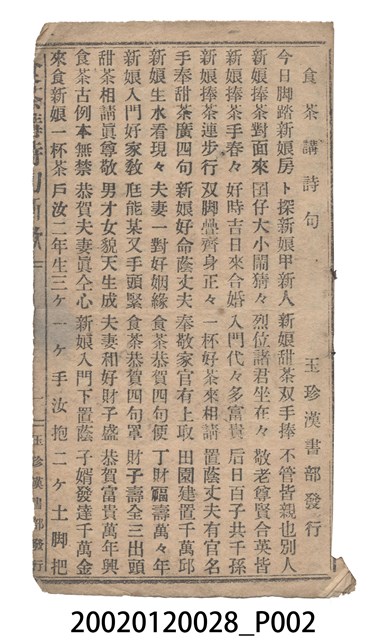 食茶講詩句
玉珍漢書部發行
今日脚踏新娘房 卜探新娘甲新人 新娘甜茶双手捧 不管皆親也別人
新娘捧茶對面來 囝仔大小鬧猜々 烈位諸君坐在々 敬老尊賢合英皆
新娘捧茶手春々 好時吉日來合婚 入門代々多富貴 后日百子共千孫
新娘捧茶連步行 双脚疊齊身正々 一杯好茶來相請 置蔭丈夫有官名
手奉甜茶廣四句 新娘好命蔭丈夫 奉敬家官有上取 田園建置千萬邱
新娘生水看現々 夫妻一對好姻緣 食茶恭賀四句便 丁財福壽萬々年
新娘入門好家敎 尫能某又手頭緊 食茶恭賀四句罩 財子壽全三出頭
甜茶相請眞尊敬 男才女貌天生成 夫妻和好財子盛 恭賀富貴萬年興
食茶古例本無禁 恭賀夫妻眞仝心 新娘入門下置蔭 子婿發達千萬金
來食新娘一杯茶 戶汝二年生三ケ 一ケ手汝抱 二ケ土脚把
玉珍漢書部發行
20020120028_P002